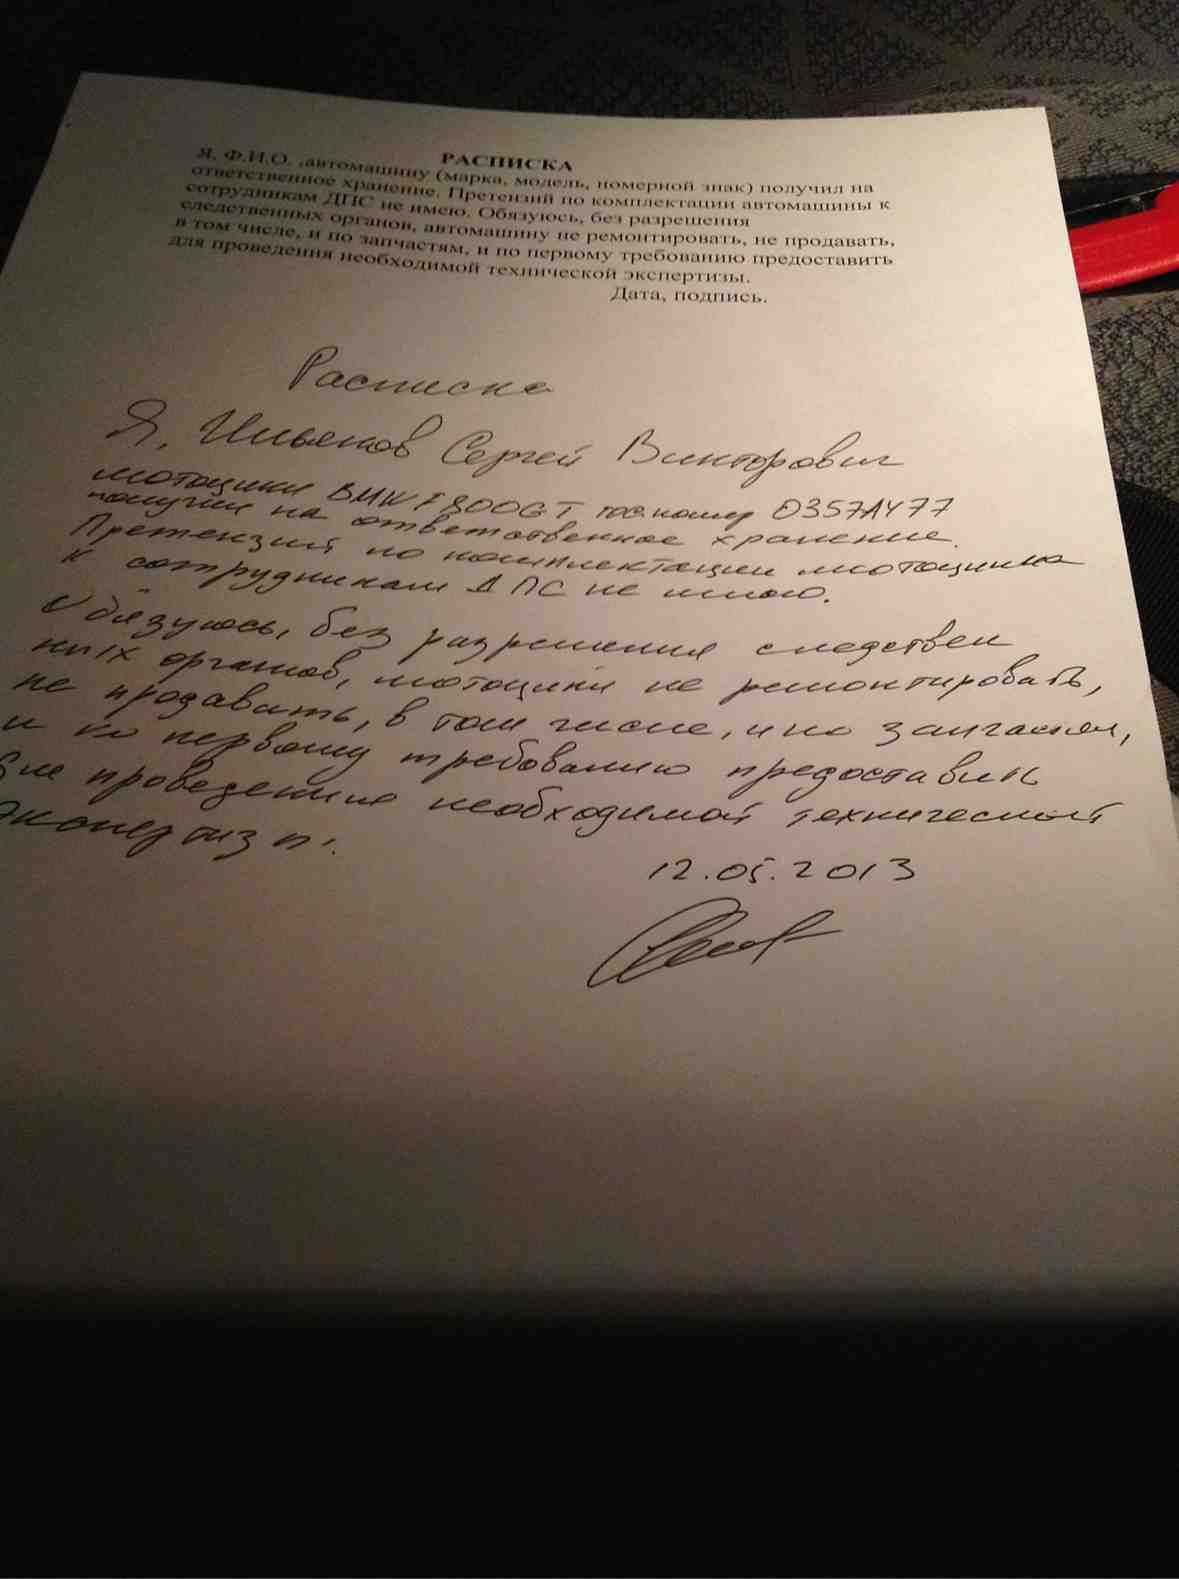 РАСПИСКА
Я, Ф.И.О. ,автомашину (марка, модель, номерной знак) получил на
ответственное хранение. Претензий по комплектации автомашины к
сотрудникам ДПС не имею. Обязуюсь, без разрешения
следственных органов, автомашину не ремонтировать, не продавать,
в том числе, и по запчастям, и по первому требованию предоставить
для проведения необходимой технической экспертизы.
Дата, подпись.
Расписка
Я, Сергей Викторович
мотоцикл BMW F800GT гос.номер 0357АУ77
получил на ответственное хранение.
Претензий по комплектации мотоцикла
к сотрудникам ДПС не имею.
Обязуюсь, без разрешения следствен
ных органов, мотоцикл не ремонтировать,
не продавать, в том числе, и по запчастям,
и по первому требованию предоставить
для проведения необходимой технической
экспертизы.
12.05.2013